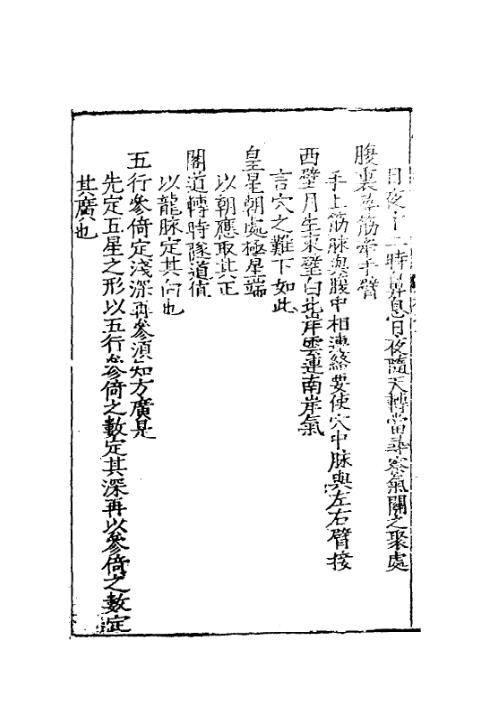 日夜十二時鼻息日夜隨天轉當尋察氣關之聚處
腹裏尋筋牽手臂
手上筋脉與腹中相連絡要使穴中脉與左右臂接
西壁月生東壁白北岸雲連南岸氣
言穴之難下如此
皇星朝處極星端
以朝應取其正
閣道轉時隧道值
以龍脉定其向也
五行參倚定淺深再參須知方廣是
先定五星之形以五行參倚之數定其深再以參倚之數定
其廣也